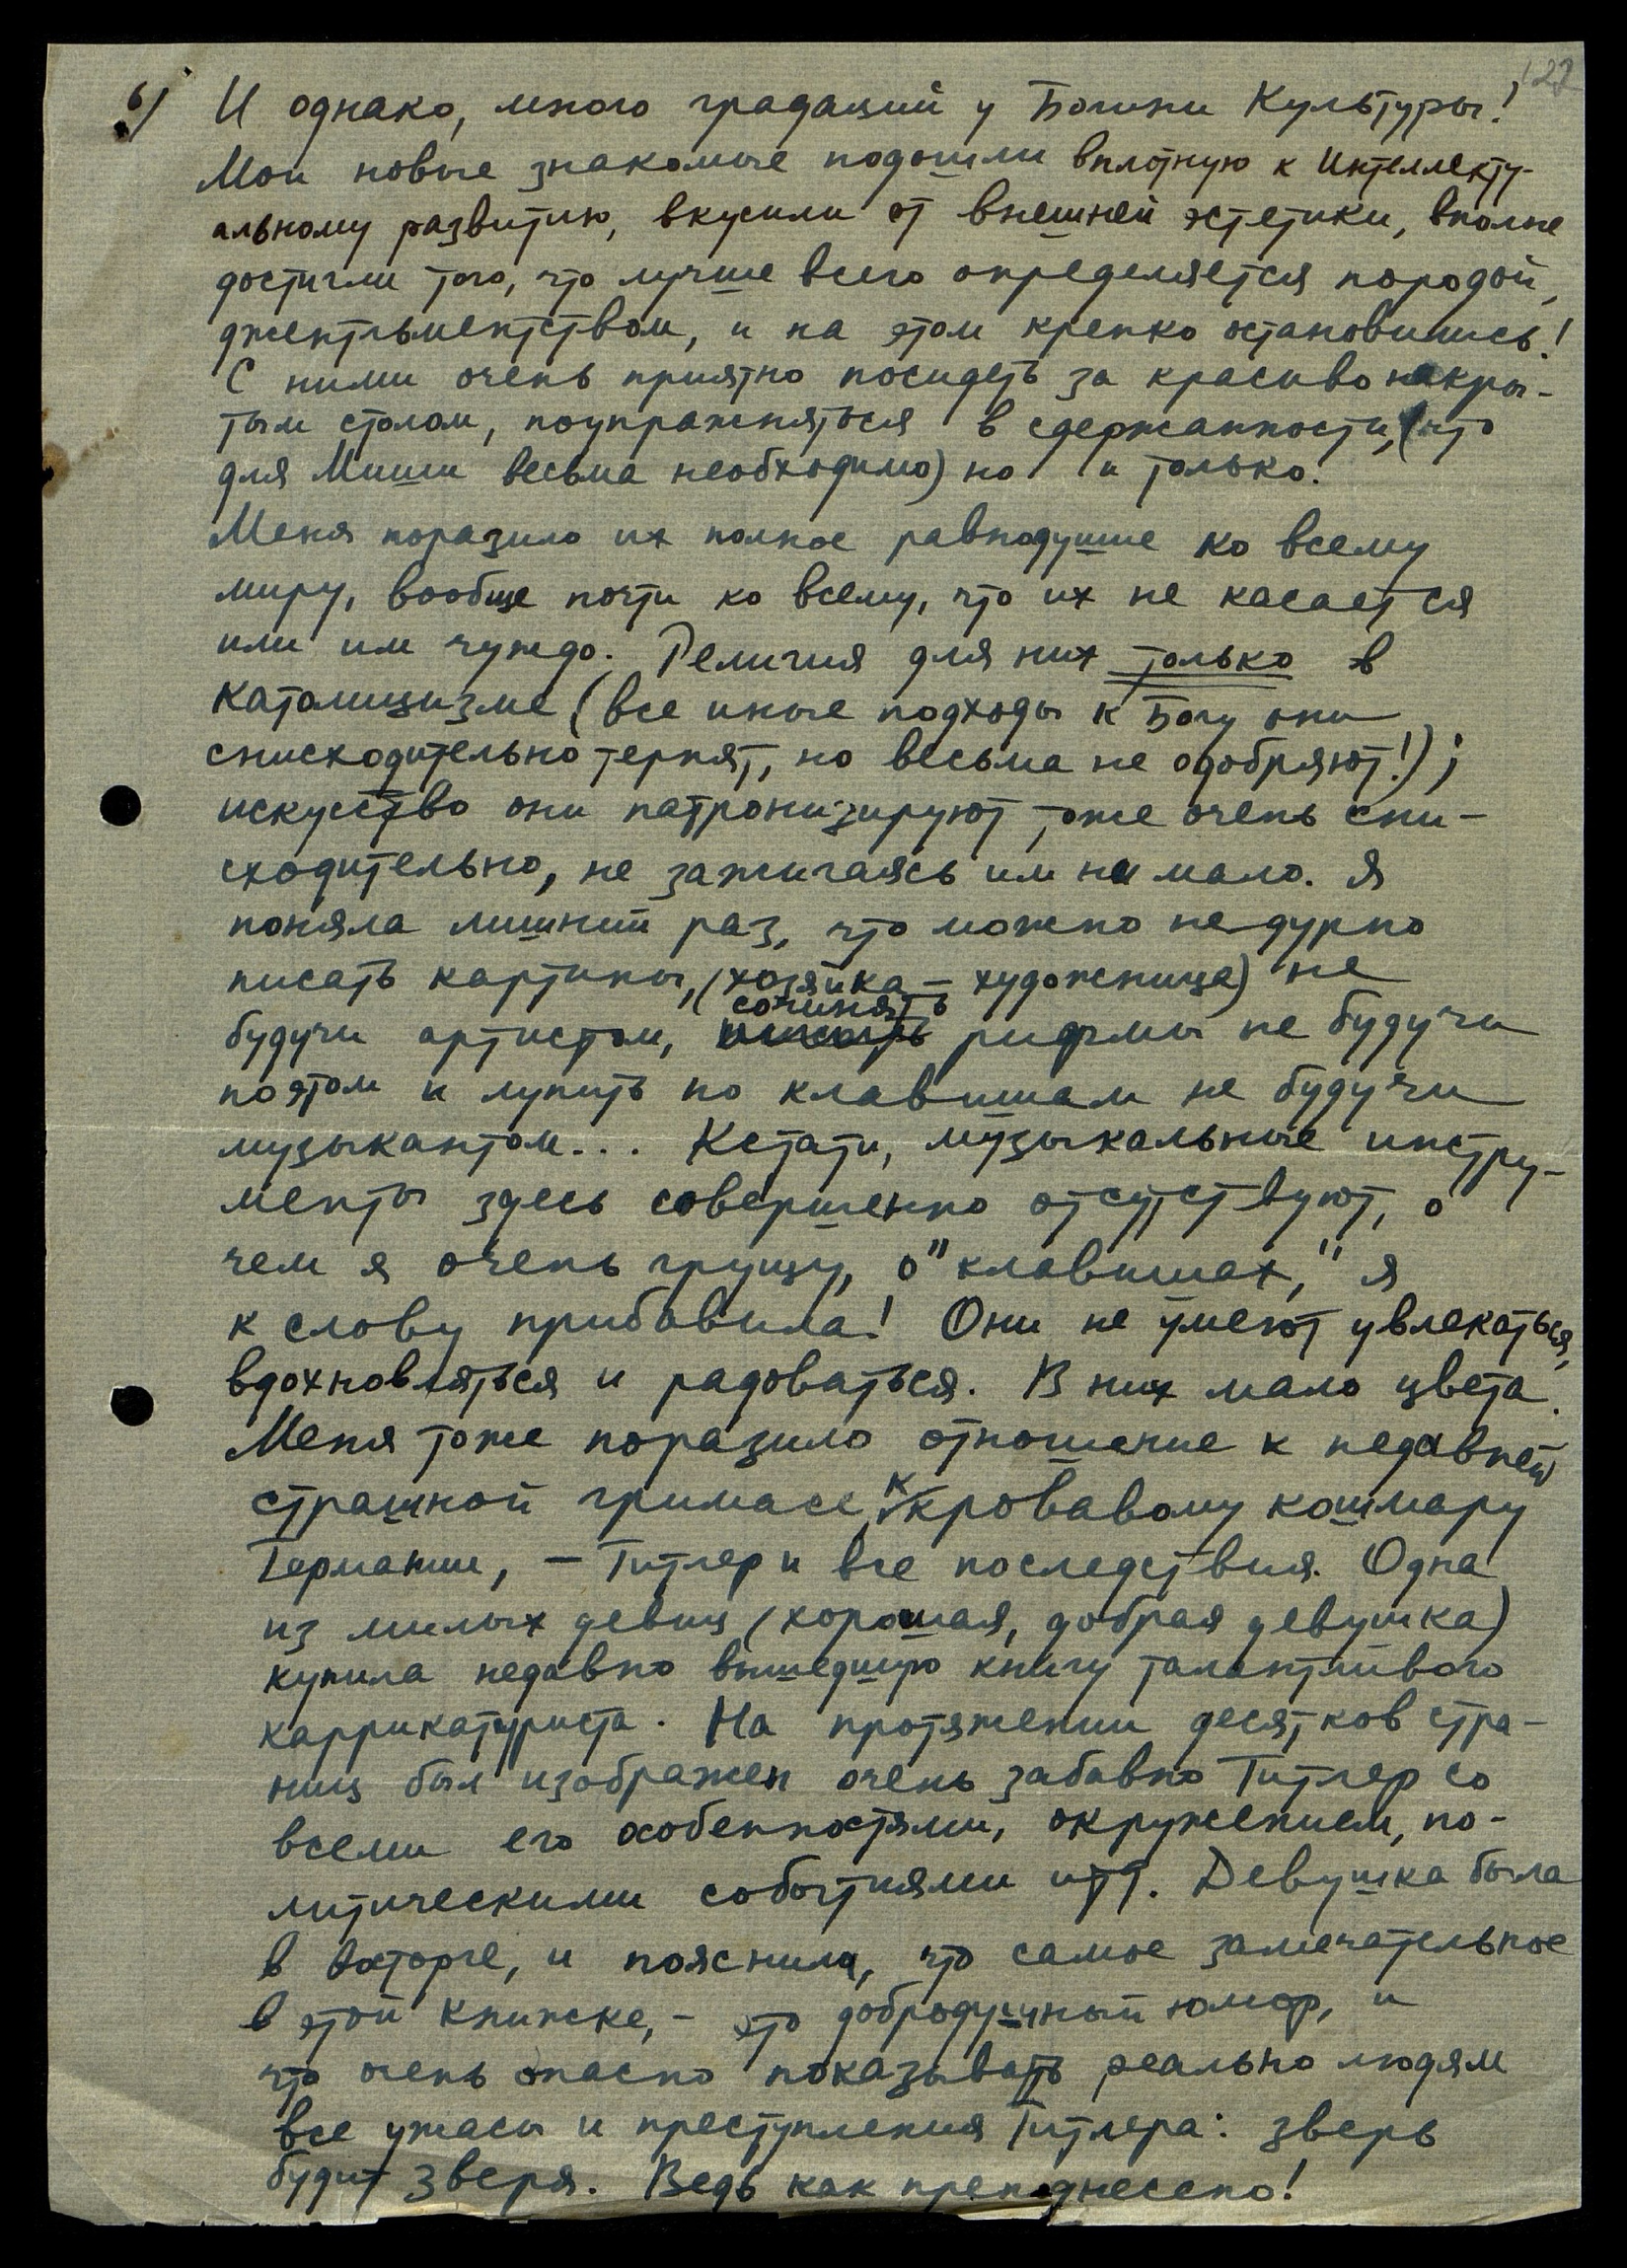 127
6) И однако, много градаций у Богини Культуры!
Мои новые знакомые подошли вплотную к интеллекту-
альному развитию, вкусили от внешней эстетики, вполне
достигли того, что лучше всего определяется породой,
джентльментством, и на этом крепко остановились!
С ними очень приятно посидеть за красиво накры-
тым столом, поупражняться в сдержанности, (что
для Миши весьма необходимо) но и только!
Меня поразило их полное равнодушие ко всему
миру, вообще почти ко всему, что их не касается
или им чуждо. Религия для них только в
католицизме (все иные подходы к Богу они
снисходительно терпят, но весьма не одобряют!);
искусство они патронизируют тоже очень сни-
сходительно, не зажигаясь им ни мало. Я
поняла лишний раз, что можно не дурно
писать картины, (хозяйка – художница) не
будучи артистом, сочинять рифмы не будучи
поэтом и лупить по клавишам не будучи
музыкантом... Кстати, музыкальные инстру-
менты здесь совершенно отсутствуют, о
чем я очень грущу, о "клавишах," я
к слову прибавила! Они не умеют увлекаться,
вдохновляться и радоваться. В них мало цвета.
Меня тоже поразило отношение к недавней
страшной гримасе, к кровавому кошмару
Германии, – Гитлер и все последствия. Одна
из милых девиц (хорошая, добрая девушка)
купила недавно вышедшую книгу талантливого
каррикатуриста. На протяжении десятков стра-
ниц был изображен очень забавно Гитлер со
всеми его особенностями, окружением, по-
литическими событиями итд. Девушка была
в восторге, и пояснила, что самое замечательное
в этой книжке, – это добродушный юмор, и
что очень опасно показывать реально людям
все ужасы и преступления Гитлера: зверь
будит зверя. Ведь как преподнесено!